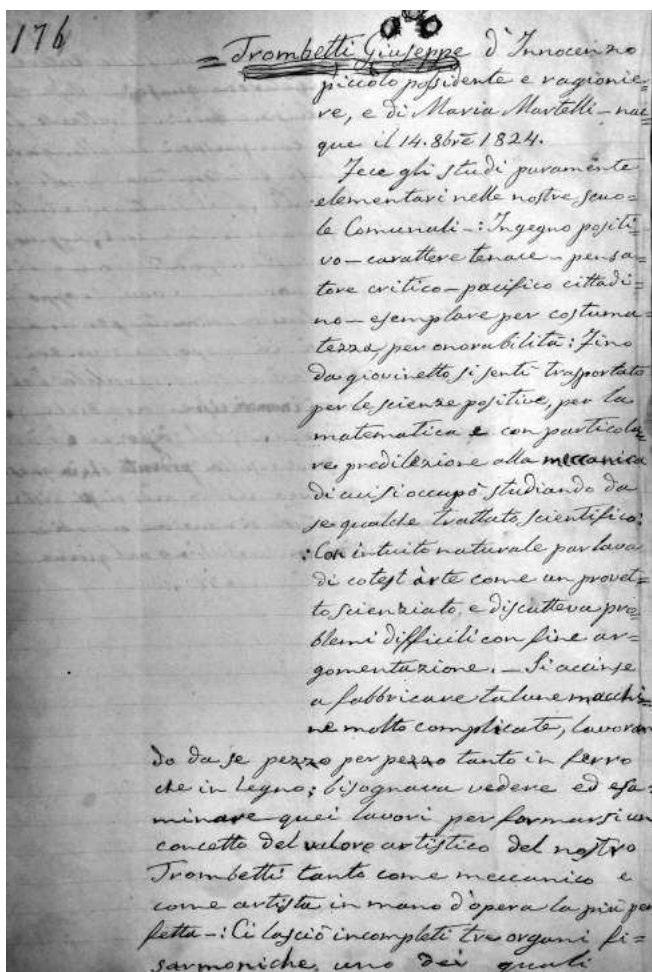 176
= Trombetti Giuseppe d'Innocenzo
piccolo possidente e ragionie=
re, e di Maria Martelli - nac=
que il 14. 8bre 1824.
Fece gli studi puramente
elementari nelle nostre scuo=
le Comunali -: Ingegno positi=
vo - carattere tenace - pensa=
tore critico - pacifico cittadi=
no - esemplare per costuma=
tezza, per onorabilità: Fino
da giovinetto si sentì trasportato
per le scienze positive, per la
matematica e con particola=
re predilezione alla meccanica
di cui si occupò studiando da
se qualche trattato scientifico:
: Con intuito naturale parlava
di cotest'arte come un provet=
to scienziato, e discutteva pro=
blemi difficili con fine ar=
gomentazione. - Si accinse
a fabbricare talune macchi=
ne molto complicate, lavoran
do da se pezzo per pezzo tanto in ferro
che in legno; bisognava vedere ed esa=
minare quei lavori per formarsi un
concetto del valore artistico del nostro
Trombetti tanto come meccanico e
come artista in mano d'opera la più per
fetta -: Ci lasciò incompleti tre organi fi=
sarmoniche, uno dei quali